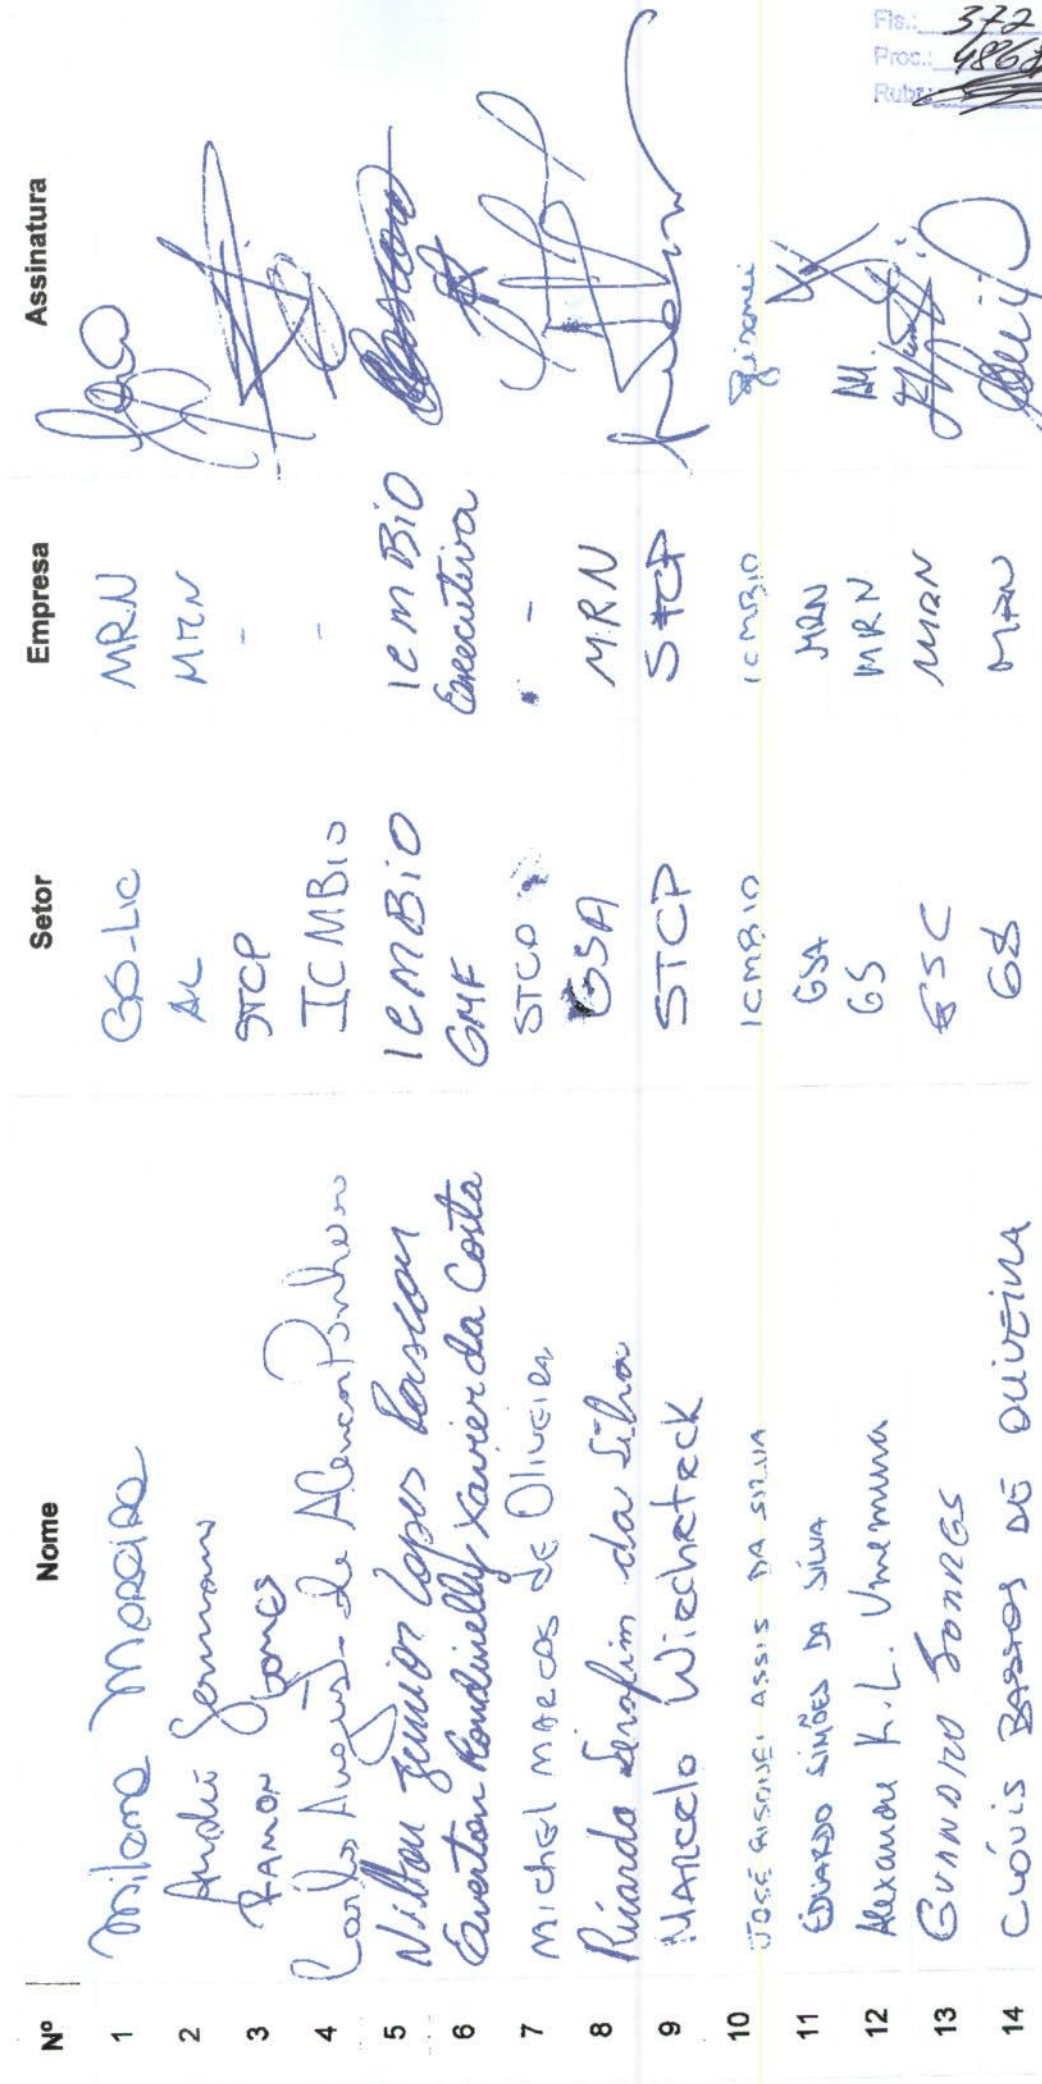 Nº Nome Setor Empresa Assinatura
1 Milena Moreira GS-LIC MRN
2 André Germano AL MRN
3 RAMON GOMES STCP -
4 Carlos Augusto de Alencar Pinheiro ICMBio -
5 Nilton Junior Lopes Rascon ICMBIO ICMBIO
6 Everton Rondinelly Xavier da Costa GMF Executiva
7 MICHEL MARCOS DE OLIVEIRA STCP -
8 Ricardo Serafim da Silva GSA MRN
9 MARCELO WIECHETECK STCP STCP
10 JOSÉ GISONEI ASSIS DA SILVA ICMBIO ICMBIO Gisonei
11 EDUARDO SIMÕES DA SILVA GSA MRN
12 Alexandre K.L. Umemura GS MRN
13 GSC MRN
14 CLÓVIS BASTOS DE OLIVEIRA GS MRN
Fls.: 372
Proc.: 4868
Rubr.: